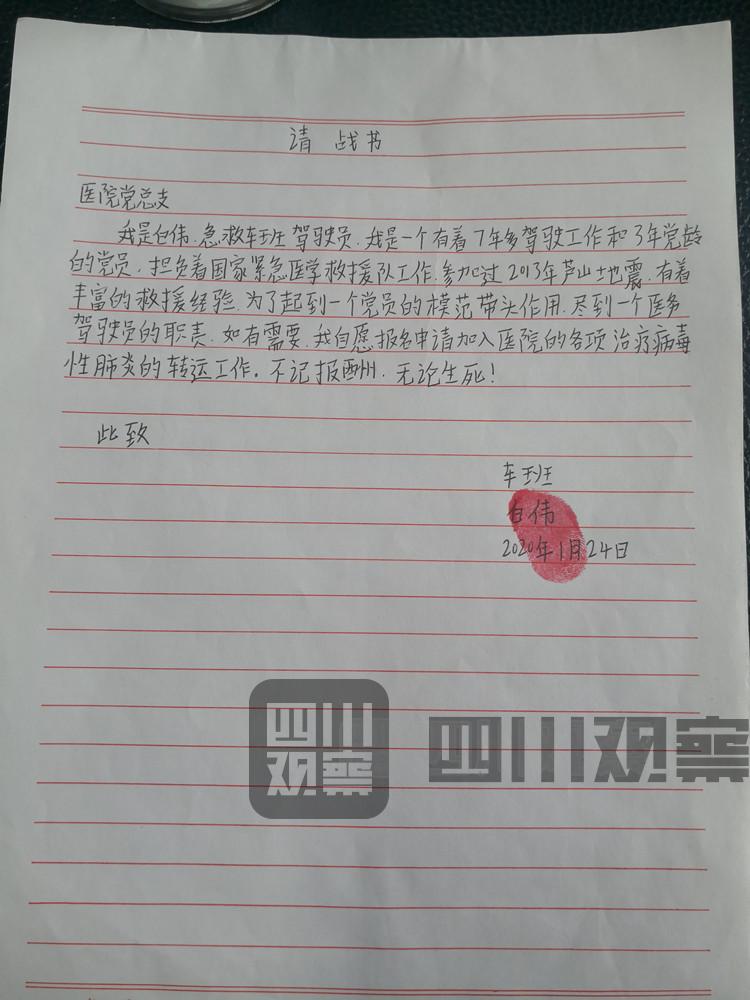 请战书
医院党总支
我是白伟.急救车班驾驶员.我是一个有着7年多驾驶工作和3年党龄
的党员.担负着国家紧急医学救援队工作.参加过2013年芦山地震.有着
丰富的救援经验.为了起到一个党员的模范带头作用.尽到一个医务
驾驶员的职责.如有需要.我自愿报名申请加入医院的各项治疗病毒
性肺炎的转运工作。不记报酬.无论生死！
此致
车班
白伟
2020年1月24日
四川
观察
四川观察